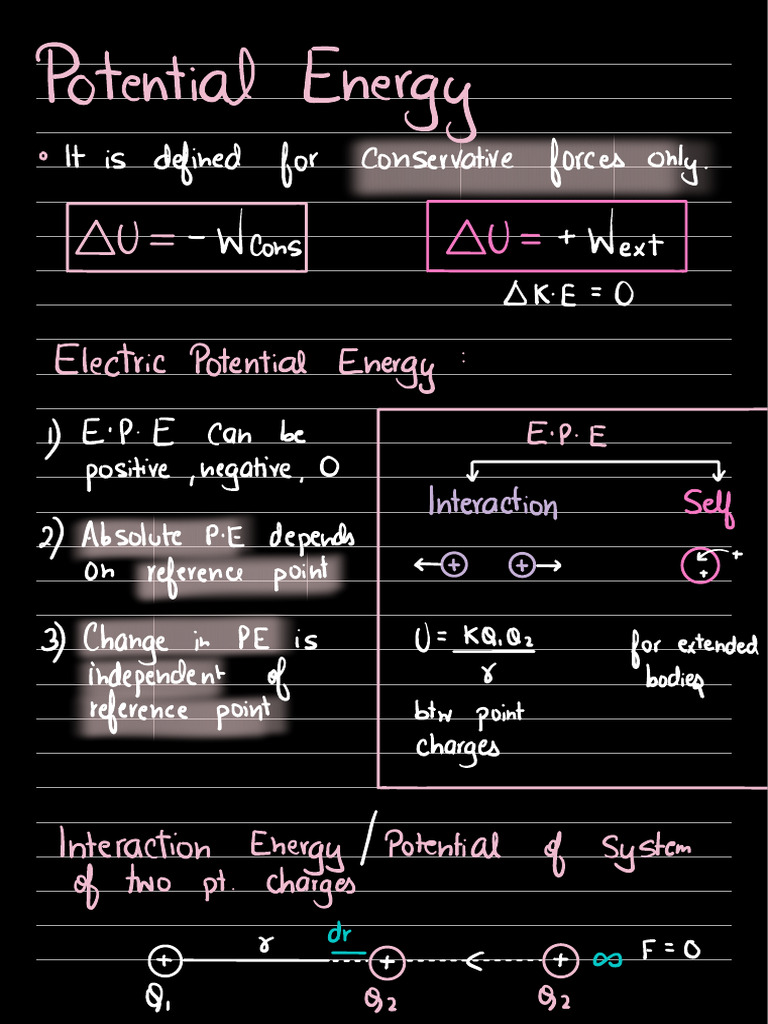 Potential Energy
• It is defined for conservative forces only.
ΔU = - Wcons
ΔU = + Wext
ΔK.E = 0
Electric Potential Energy :
1) E.P.E can be
positive, negative, 0
2) Absolute P.E depends
on reference point
3) Change in PE is
independent of
reference point
E.P.E
Interaction
Self
+ +
+ +
U = KQ1Q2
r
btw point
charges
for extended
bodies
Interaction Energy / Potential of System
of two pt. charges
+ r dr + < + ∞ F = 0
Q1 Q2 Q2